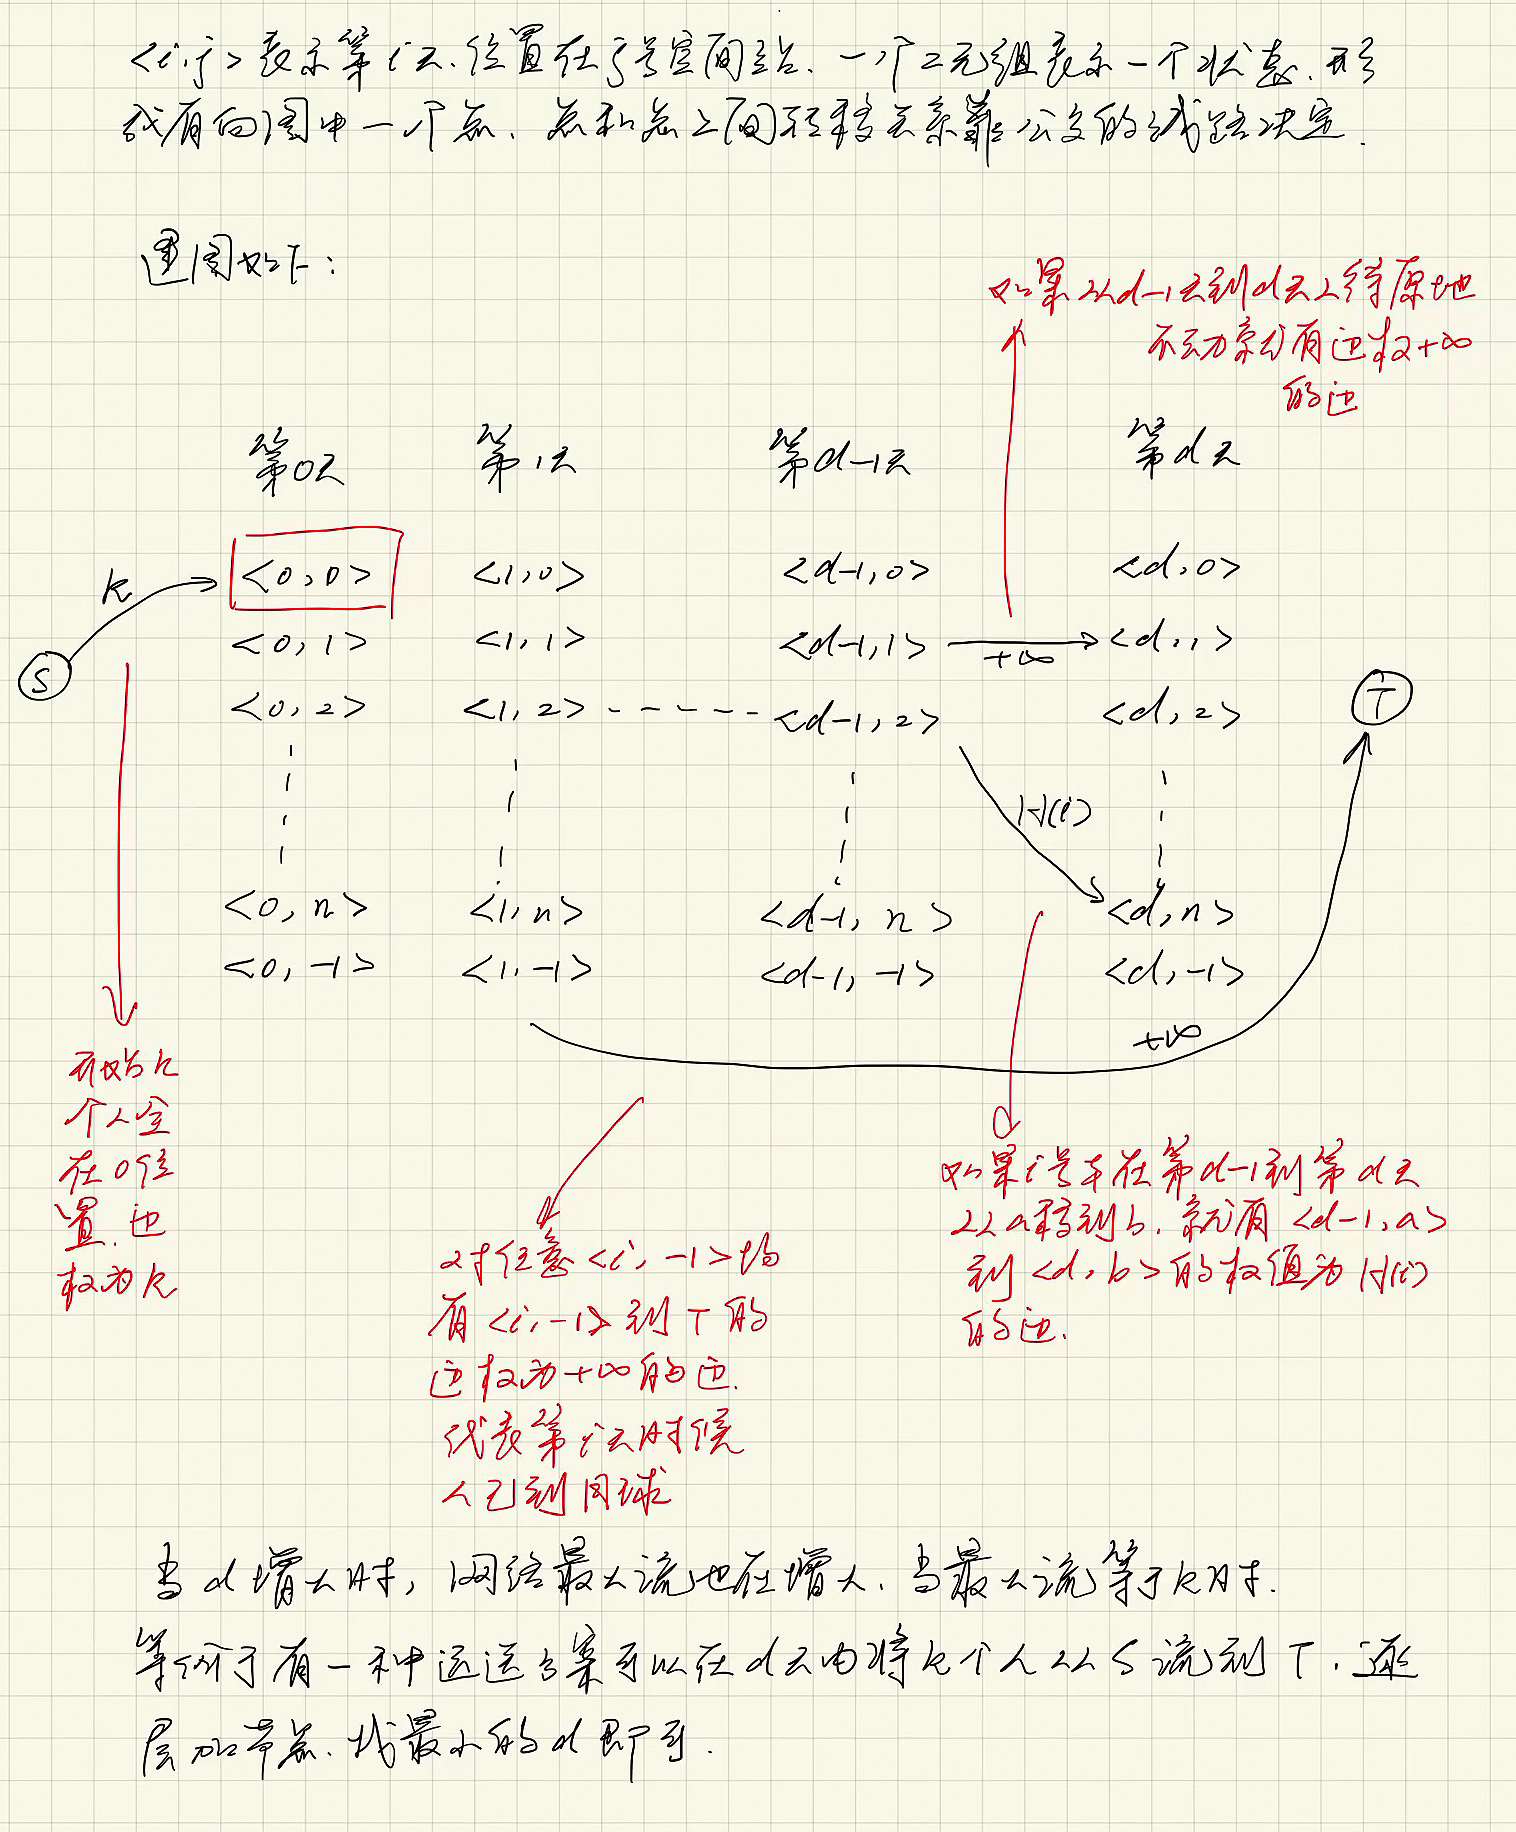 <i,j>表示第i天,位置在j号空间站,一个二元组表示一个状态,形
成有向图中一个点,点和点之间转移关系靠公交的线路决定.
建图如下:
如果人从d-1天到d天人待原地
不动就有边权+∞
的边
第0天 第1天 第d-1天 第d天
k <0,0> <1,0> <d-1,0> <d,0>
<0,1> <1,1> <d-1,1> +∞ <d,1>
S <0,2> <1,2> <d-1,2> <d,2> T
H(i)
<0,n> <1,n> <d-1,n> <d,n>
<0,-1> <1,-1> <d-1,-1> <d,-1>
+∞
开始k
个人全
在0位
置,边
权为k
对任意<i,-1>均
有<i,-1>到T的
边权为+∞的边.
代表第i天时候
人已到月球
如果i号车在第d-1到第d天
从a移到b,就有<d-1,a>
到<d,b>的权值为H(i)
的边.
当d增大时,网络最大流也在增大,当最大流等于k时.
等价于有一种运送方案可以在d天内将k个人从S流到T,逐
层加节点,找最小的d即可.